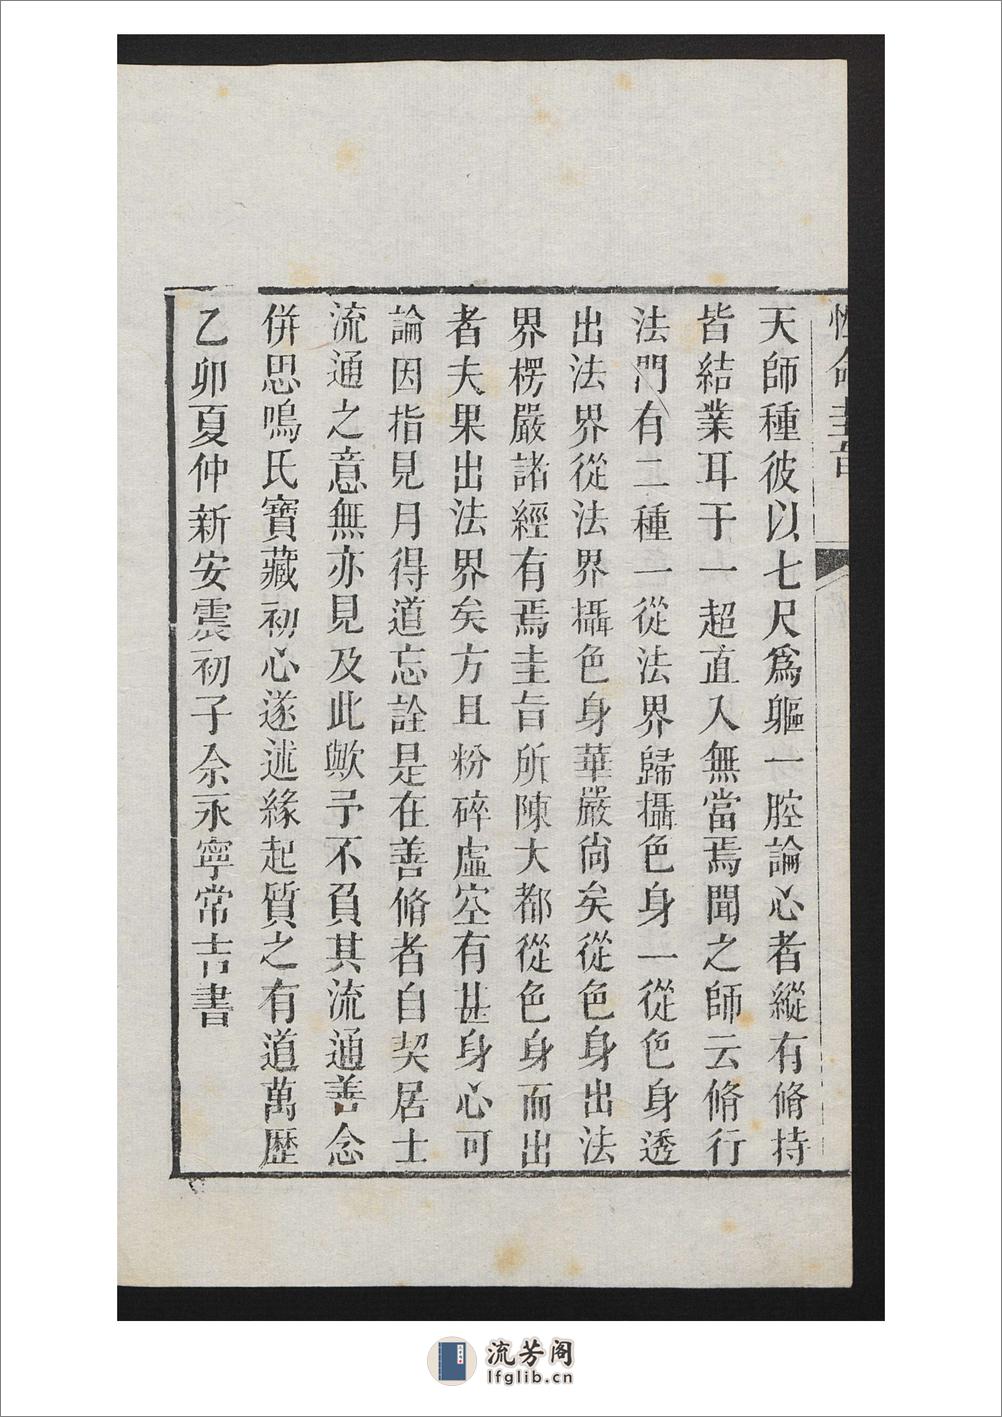 性命圭旨
天師種彼以七尺爲軀一腔論心者縱有脩持
皆結業耳于一超直入無當焉聞之師云脩行
法門有二種一從法界歸攝色身一從色身透
出法界從法界攝色身華嚴尙矣從色身出法
界楞嚴諸經有焉圭旨所陳大都從色身而出
者夫果出法界矣方且粉碎虛空有甚身心可
論因指見月得道忘詮是在善脩者自契居士
流通之意無亦見及此歟予不負其流通善念
併思鳴氏寶藏初心遂述緣起質之有道萬歷
乙卯夏仲新安震初子佘永寧常吉書
流芳阁
lfglib.cn